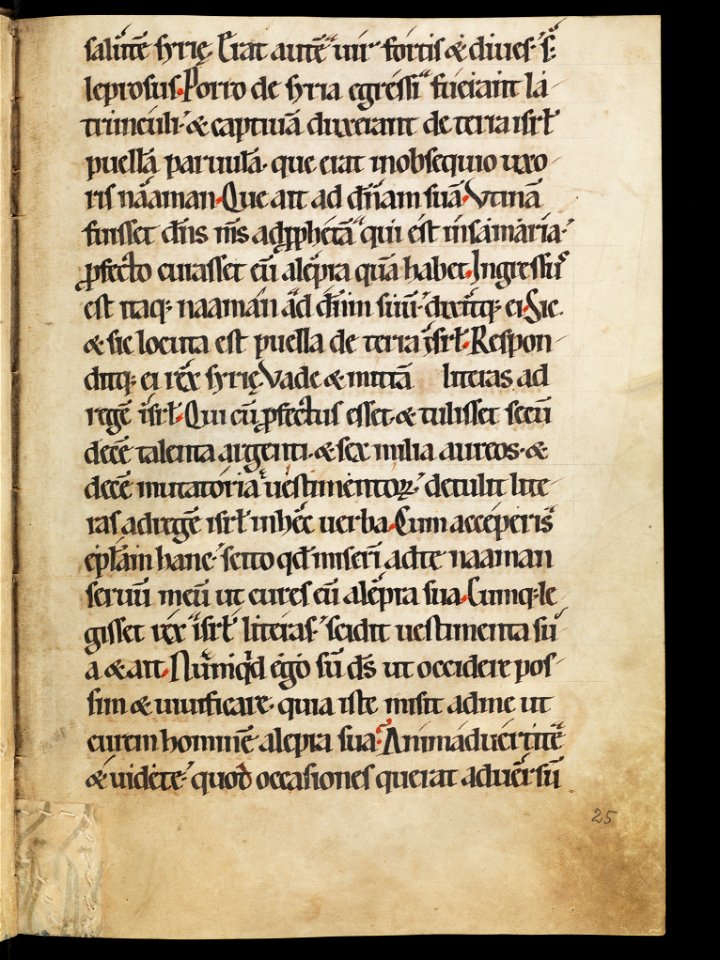 salutē syrię. Erat autē uir fortis & diues. s;
leprosus. Porro de syria egressi fuerant la
trunculi. & captiuā duxerant de terra isrł
puellā paruulā. que erat in obsequio uxo
ris naaman. Que ait ad dn̄am suā. Vtinā
fuisset dn̄s m̄s ad ꝓphetā qui est in samaria.
ꝓfecto curasset eū a lepra quā habet. Ingressus
est itaq; naaman ad dn̄m suū. dixitq; ei. Sic
& sic locuta est puella de terra isrł. Respon
ditq; ei rex syrię Vade & mittā literas ad
regē isrł. Qui cū ꝓfectus esset. & tulisset secū
decē talenta argenti. & sex milia aureos. &
decē mutatoria uestimentoꝝ. detulit lite
ras ad regē isrł in hęc uerba. Cum acceperis
epłam hanc. scito qđ miserī ad te naaman
seruū meū ut cures eū a lepra sua. Cumq; le
gisset rex isrł literas. scidit uestimenta su
a & ait. Nūquid ego sū ds̄ ut occidere pos
sim & uiuificare. quia iste misit ad me ut
curem hominē a lepra sua? Animaduertite
& uidete. quod occasiones querat aduersū
25